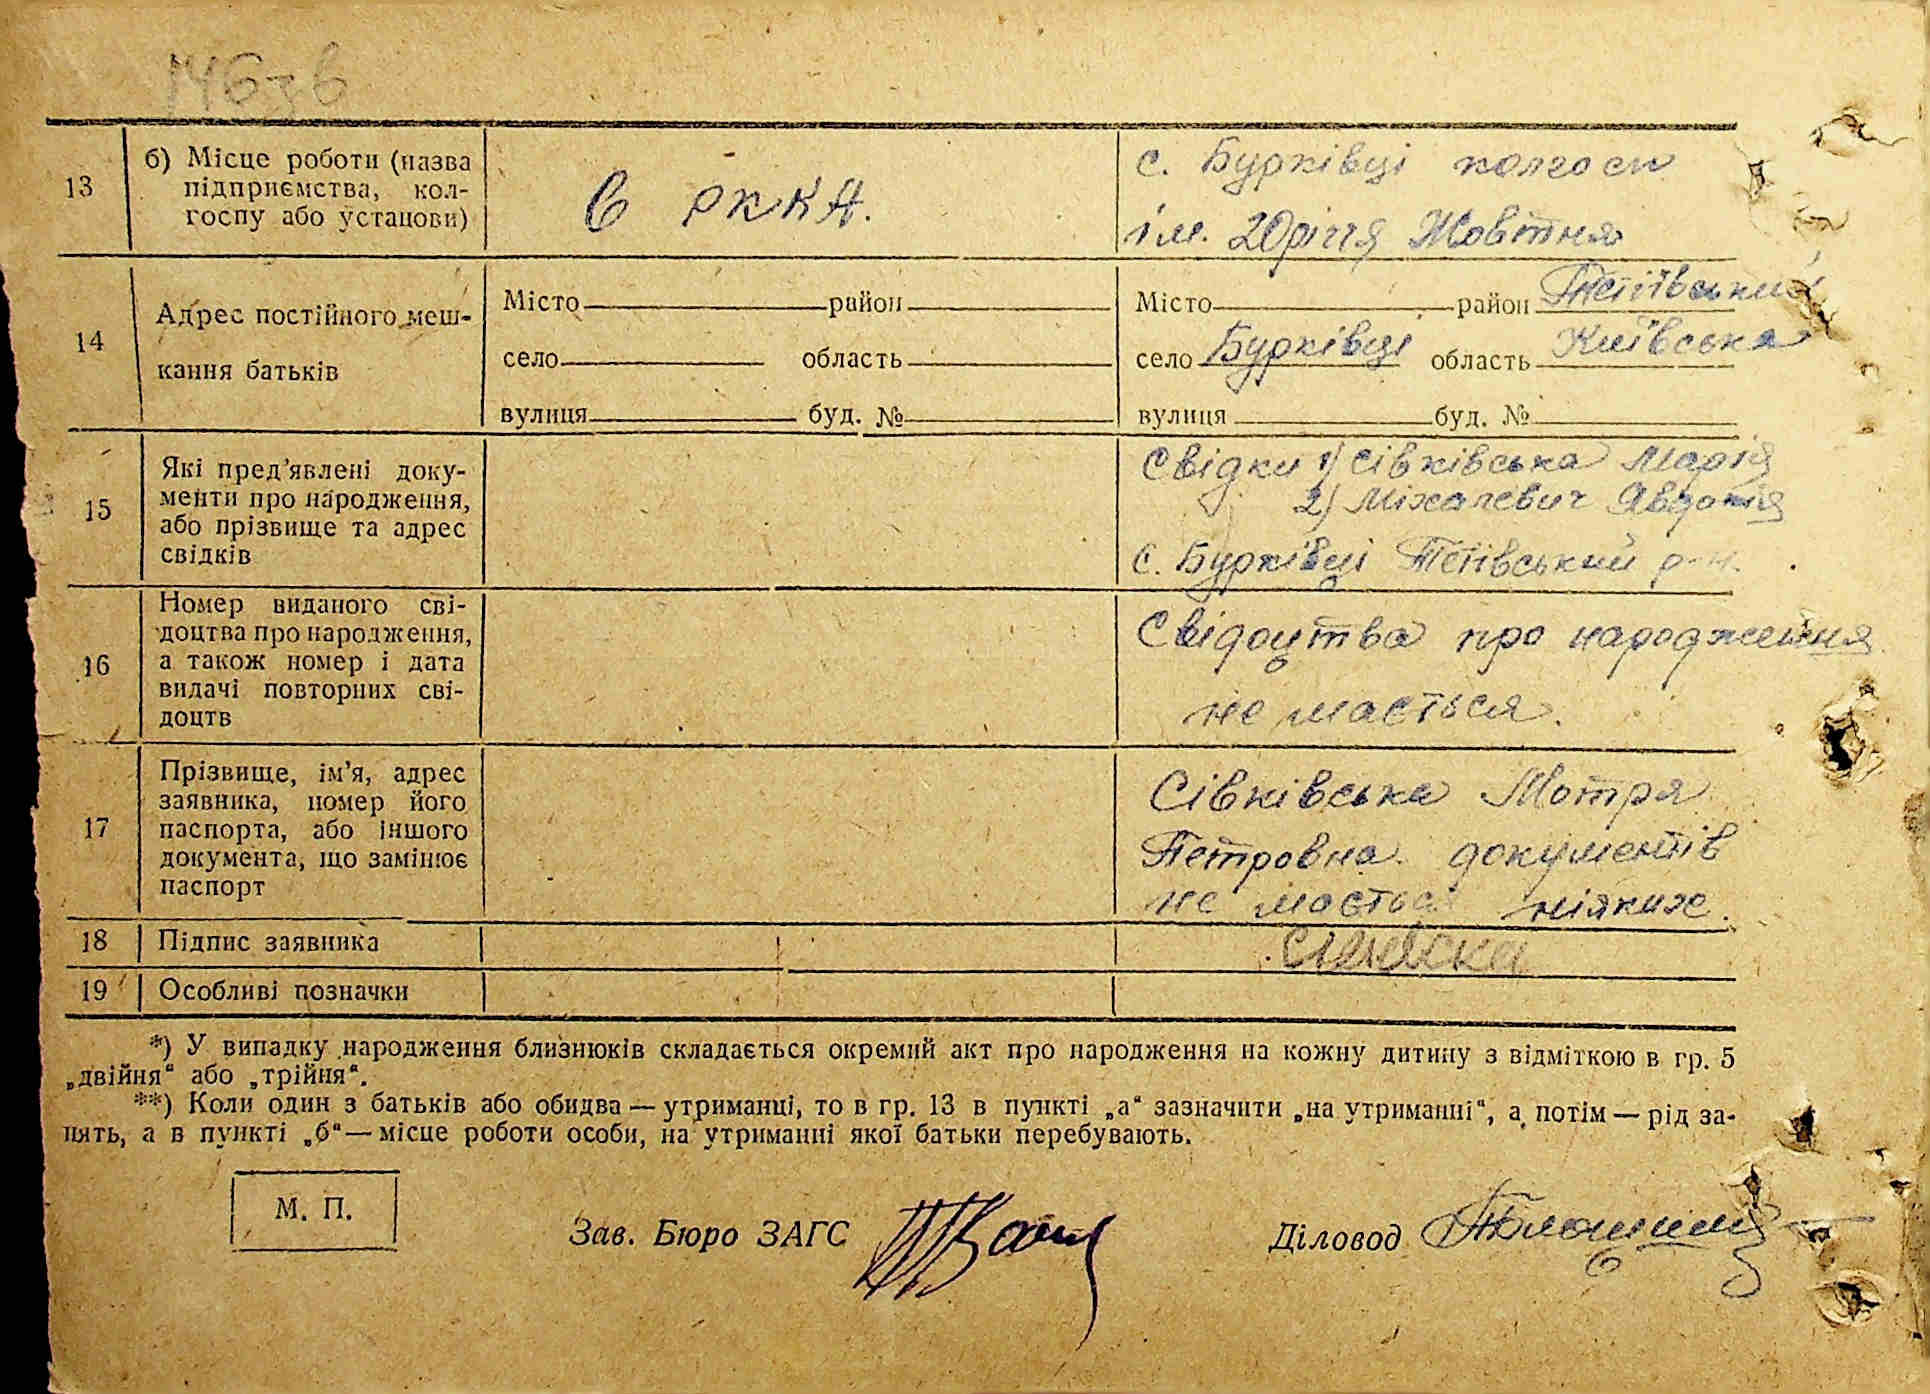 146зв
13 б) Місце роботи (назва
підприємства, кол-
госпу або установи)
в РККА.
с. Бурківці колгосп
ім. 20річчя Жовтня
14 Адрес постійного меш-
кання батьків
Місто район
село область
вулиця буд. №
Місто район Тетіївський
село Бурківці область Київська
вулиця буд. №
15 Які пред’явлені доку-
менти про народження,
або прізвище та адрес
свідків
Свідки 1) Сівківська Марія
2) Міхалевич Явдокія
с. Бурківці Тетіївський р-н.
16 Номер виданого сві-
доцтва про народження,
а також номер і дата
видачі повторних сві-
доцтв
Свідоцтва про народження
не мається.
17 Прізвище, ім’я, адрес
заявника, номер його
паспорта, або іншого
документа, що замінює
паспорт
Сівківська Мотря
Петровна. документів
не мається ніяких.
18 Підпис заявника
19 Особливі позначки
*) У випадку народження близнюків складається окремий акт про народження на кожну дитину з відміткою в гр. 5
„двійня“ або „трійня“.
**) Коли один з батьків або обидва — утриманці, то в гр. 13 в пункті „а“ зазначити „на утриманні“, а потім — рід за-
нять, а в пункті „б“ — місце роботи особи, на утриманні якої батьки перебувають.
М. П.
Зав. Бюро ЗАГС
Діловод